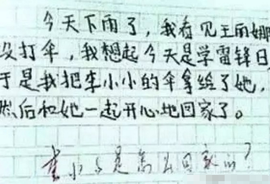 今天下雨了，我看见王雨娜
没打伞，我想起今天是学雷锋日
于是我把李小小的伞拿给了她，
然后和她一起开心地回家了。
李小小是怎么回家的？